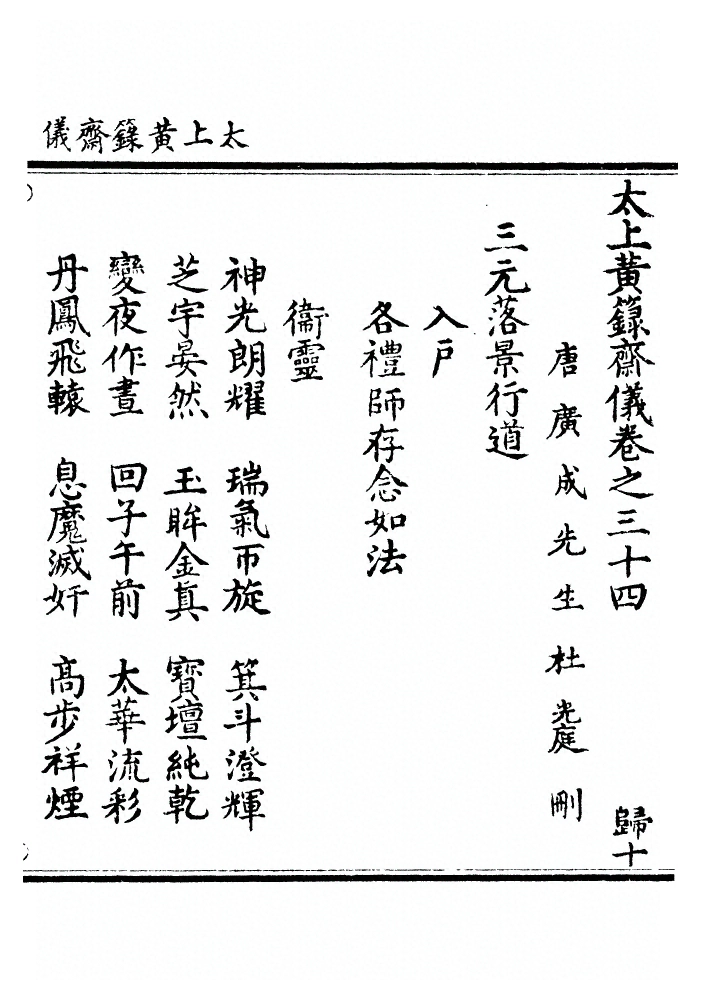 太上黃籙齋儀
太上黃籙齋儀卷之三十四 歸十
唐廣成先生杜光庭刪
三元落景行道
入戶
各禮師存念如法
衞靈
神光朗耀 瑞氣帀旋 箕斗澄輝
芝宇晏然 玉眸金真 寶壇純乾
變夜作晝 回子午前 太華流彩
丹鳳飛轅 息魔滅奸 高步祥煙